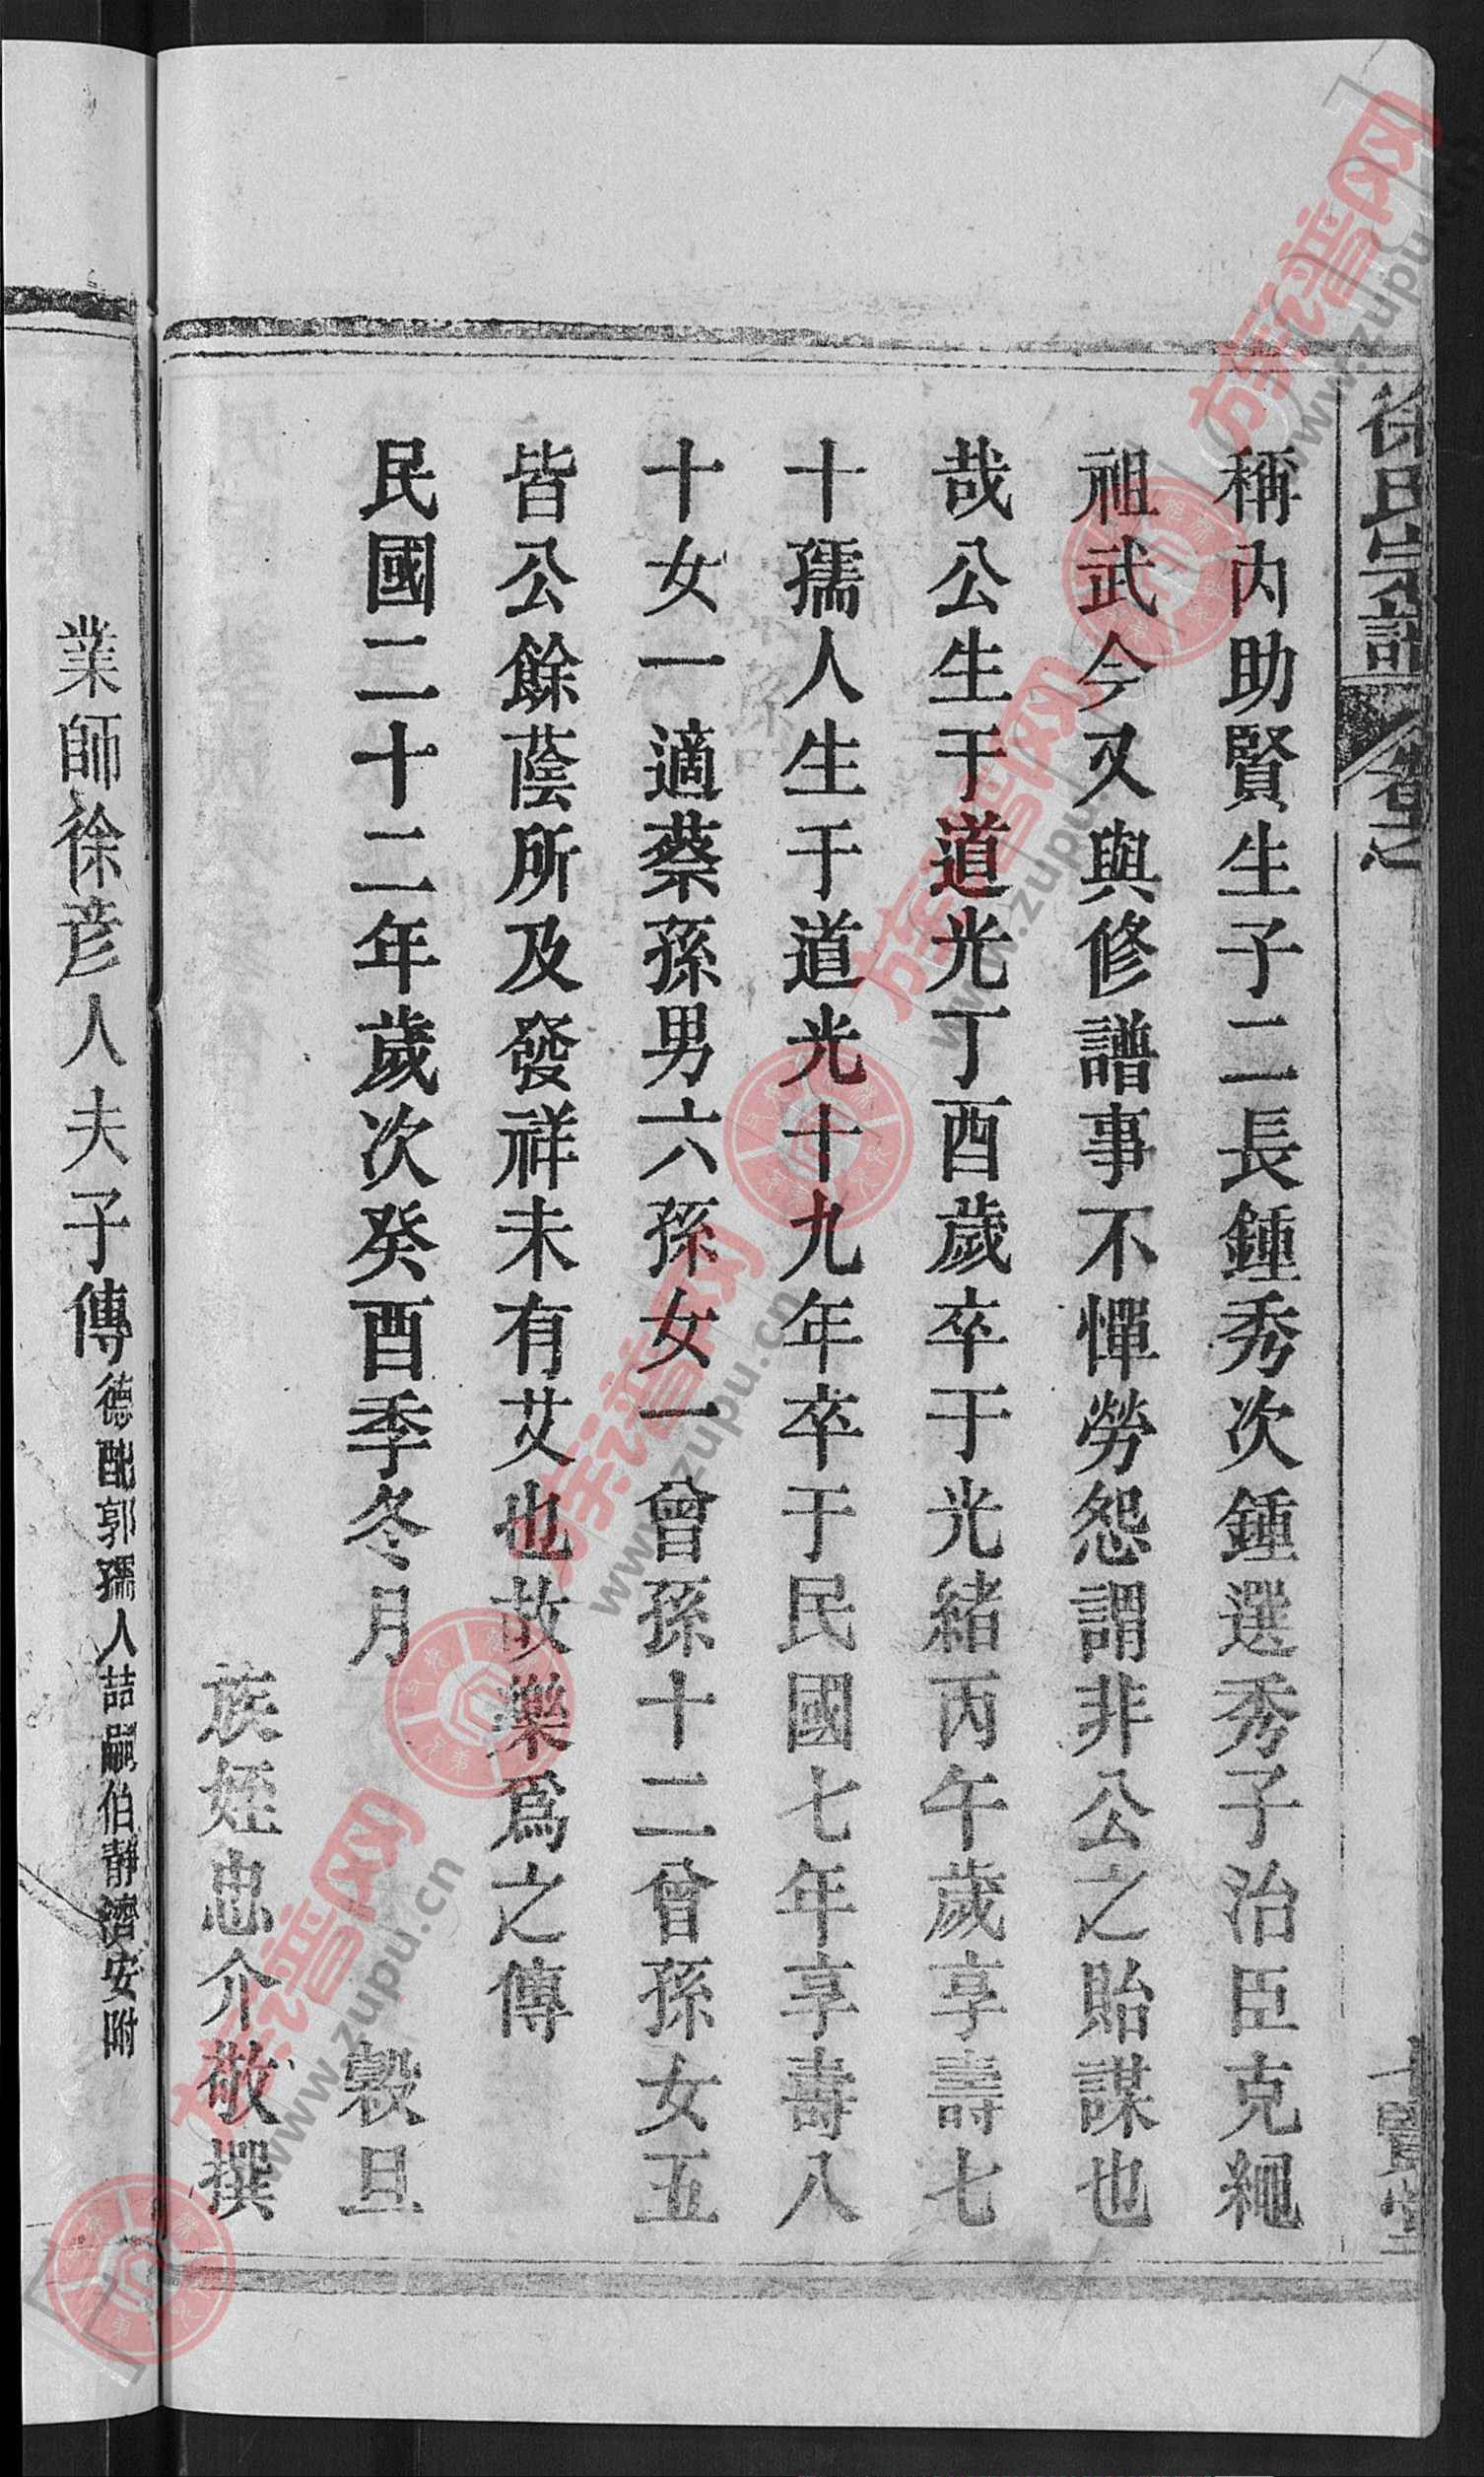 徐氏宗譜
卷之
稱內助賢生子二長鍾秀次鍾選秀子治臣克繩
祖武今又與修譜事不憚勞怨謂非公之貽謀也
哉公生于道光丁酉歲卒于光緒丙午歲享壽七
十孺人生于道光十九年卒于民國七年享壽八
十女一適蔡孫男六孫女一曾孫十二曾孫女五
皆公餘蔭所及發祥未有艾也故樂爲之傳
民國二十二年歲次癸酉季冬月 穀旦
族姪忠介敬撰
業師徐彥人夫子傳德配郭孺人喆嗣伯靜濟安附
族谱网 www.zupu.cn